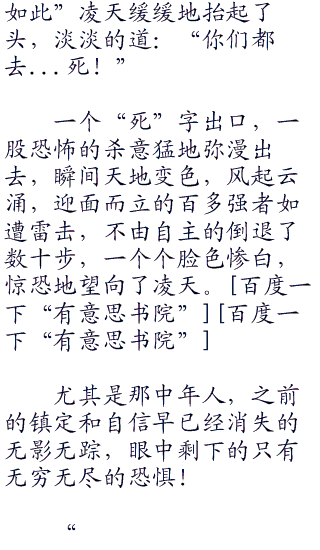 如此”凌天缓缓地抬起了
头，淡淡的道：“你们都
去...死！”
一个“死”字出口，一
股恐怖的杀意猛地弥漫出
去，瞬间天地变色，风起云
涌，迎面而立的百多强者如
遭雷击，不由自主的倒退了
数十步，一个个脸色惨白，
惊恐地望向了凌天。[百度一
下“有意思书院”][百度一
下“有意思书院”]
尤其是那中年人，之前
的镇定和自信早已经消失的
无影无踪，眼中剩下的只有
无穷无尽的恐惧！
“